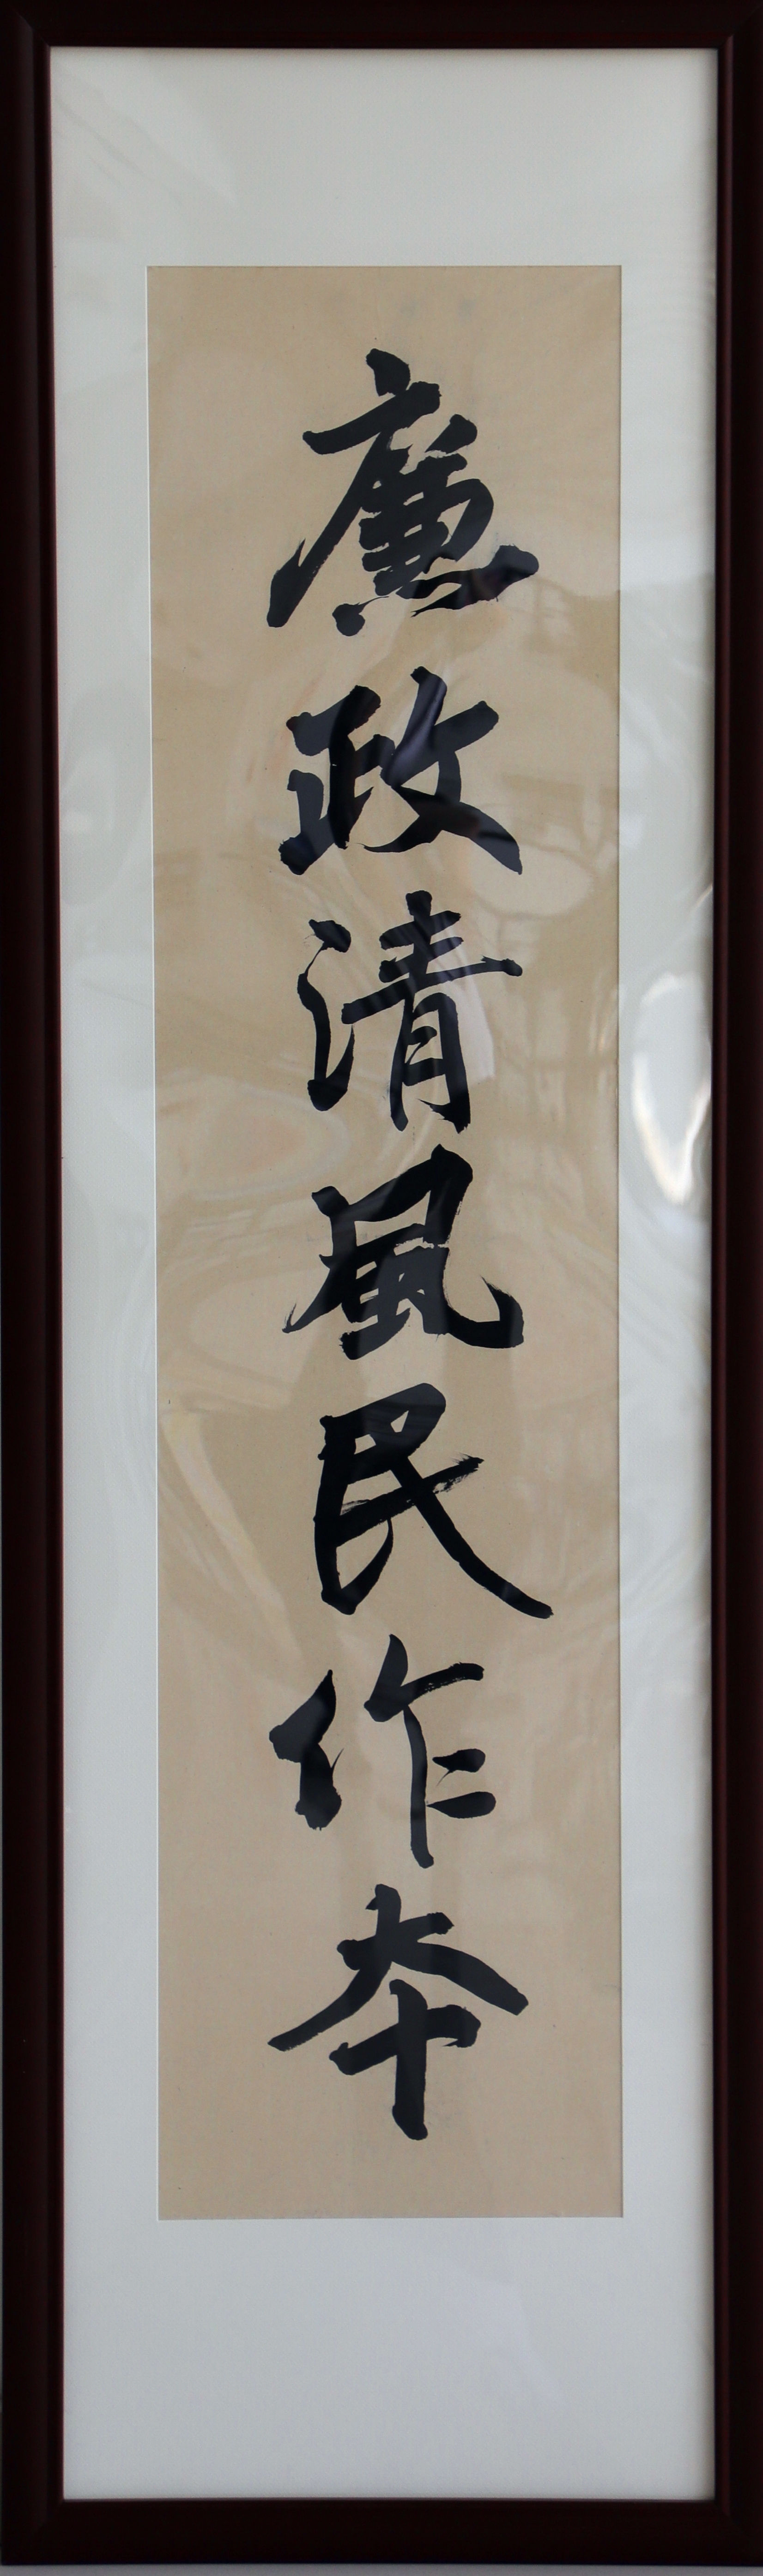 廉政清風民作本